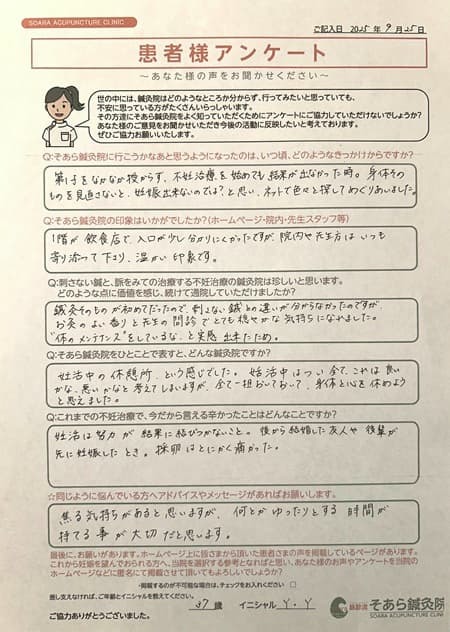 SOARA ACUPUNCTURE CLINIC
ご記入日 2025年 9月25日
患者様アンケート
～あなた様の声をお聞かせください～
世の中には、鍼灸院はどのようなところか分からず、行ってみたいと思っていても、
不安に思っている方がたくさんいらっしゃいます。
その方達にそあら鍼灸院をよく知っていただくためにアンケートにご協力していただけないでしょうか?
あなた様のご意見をお聞かせいただき今後の活動に反映したいと考えております。
ぜひご協力お願いいたします。
Q:そあら鍼灸院に行こうかなあと思うようになったのは、いつ頃、どのようなきっかけからですか?
第1子をなかなか授からず、不妊治療を始めても結果が出なかった時。身体その
ものを見直さないと、妊娠出来ないのでは?と思い、ネットで色々と探してめぐりあいました。
Q:そあら鍼灸院の印象はいかがでしたか?(ホームページ・院内・先生スタッフ等)
1階が飲食店で、入口が少し分かりにくかったですが、院内や先生方はいつも
寄り添って下さり、温かい印象です。
Q:刺さない鍼と、脈をみての治療する不妊治療の鍼灸院は珍しいと思います。
どのような点に価値を感じ、続けて通院していただけましたか?
鍼灸そのものが初めてだったので、刺さない鍼との違いが分からなかったのですが、
お灸のよい香りと先生の問診でとても穏やかな気持ちになれました。
"体のメンテナンス"をしているな、と実感出来たため。
Q:そあら鍼灸院をひとことで表すと、どんな鍼灸院ですか?
妊活中の休憩所、という感じでした。妊活中はつい全て、これは良い
かな、悪いかなと考えてしまいますが、全て一担おいておいて、身体と心を休めよう
と思えました。
Q:これまでの不妊治療で、今だから言える辛かったことはどんなことですか?
妊活は努力が結果に結びつかないこと。後から結婚した友人や後輩が
先に妊娠したとき。採卵はとにかく痛かった。
☆同じように悩んでいる方へアドバイスやメッセージがあればお願いします。
焦る気持ちがあると思いますが、何とかゆったりとする時間が
持てる事が大切だと思います。
最後に、お願いがあります。ホームページ上に皆さまから頂いた患者さまの声を掲載しているページがあります。
これから妊娠を望んでおられる方へ、当院を選択する参考となればと思い、あなた様のお声やアンケートを当院の
ホームページなどに匿名にて掲載させて頂いてもよろしいでしょうか?
・掲載するのが不可能な場合は、チェックをお入れください □
差し支えなければ、ご年齢とイニシャルを教えてください。
37歳 イニシャル Y.Y
ご協力ありがとうございました。
そあら鍼灸院
SOARA ACUPUNCTURE CLINIC